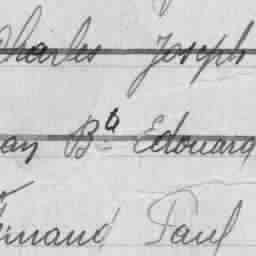 Charles Joseph
an Bte Edouard
ernand Paul